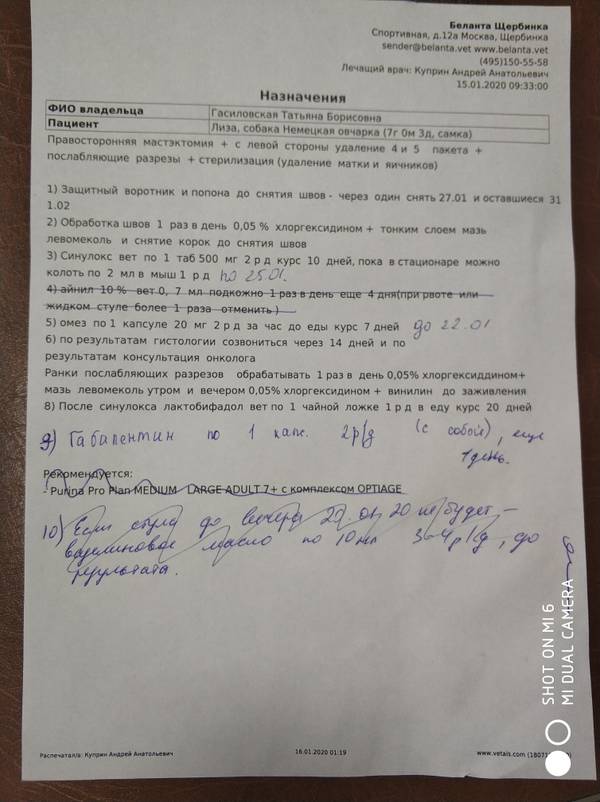 Беланта Щербинка
Спортивная, д.12а Москва, Щербинка
sender@belanta.vet www.belanta.vet
(495)150-55-58
Лечащий врач: Куприн Андрей Анатольевич
15.01.2020 09:33:00
Назначения
ФИО владельца Гасиловская Татьяна Борисовна
Пациент Лиза, собака Немецкая овчарка (7г 0м 3д, самка)
Правосторонняя мастэктомия + с левой стороны удаление 4 и 5 пакета +
послабляющие разрезы + стерилизация (удаление матки и яичников)
1) Защитный воротник и попона до снятия швов - через один снять 27.01 и оставшиеся 31
1.02
2) Обработка швов 1 раз в день 0,05 % хлоргексидином + тонким слоем мазь
левомеколь и снятие корок до снятия швов
3) Синулокс вет по 1 таб 500 мг 2 р д курс 10 дней, пока в стационаре можно
колоть по 2 мл в мыш 1 р д по 25.01.
4) айнил 10 % вет 0, 7 мл подкожно 1 раз в день еще 4 дня(при рвоте или
жидком стуле более 1 раза отменить )
5) омез по 1 капсуле 20 мг 2 р д за час до еды курс 7 дней до 22.01
6) по результатам гистологии созвониться через 14 дней и по
результатам консультация онколога
Ранки послабляющих разрезов обрабатывать 1 раз в день 0,05% хлоргексиддином+
мазь левомеколь утром и вечером 0,05% хлоргексидином + винилин до заживления
8) После синулокса лактобифадол вет по 1 чайной ложке 1 р д в еду курс 20 дней
9) Габапентин по 1 капс. 2р/д (с собой), еще
1 день.
Рекомендуется:
- Purina Pro Plan MEDIUM LARGE ADULT 7+ с комплексом OPTIAGE
10) Если стула до вечера 20 не будет, -
вазелиновое масло по 10 мл 3-4 р/д, до
результата.
SHOT ON MI 6
MI DUAL CAMERA
Распечатал/а: Куприн Андрей Анатольевич
16.01.2020 01:19
www.vetais.com